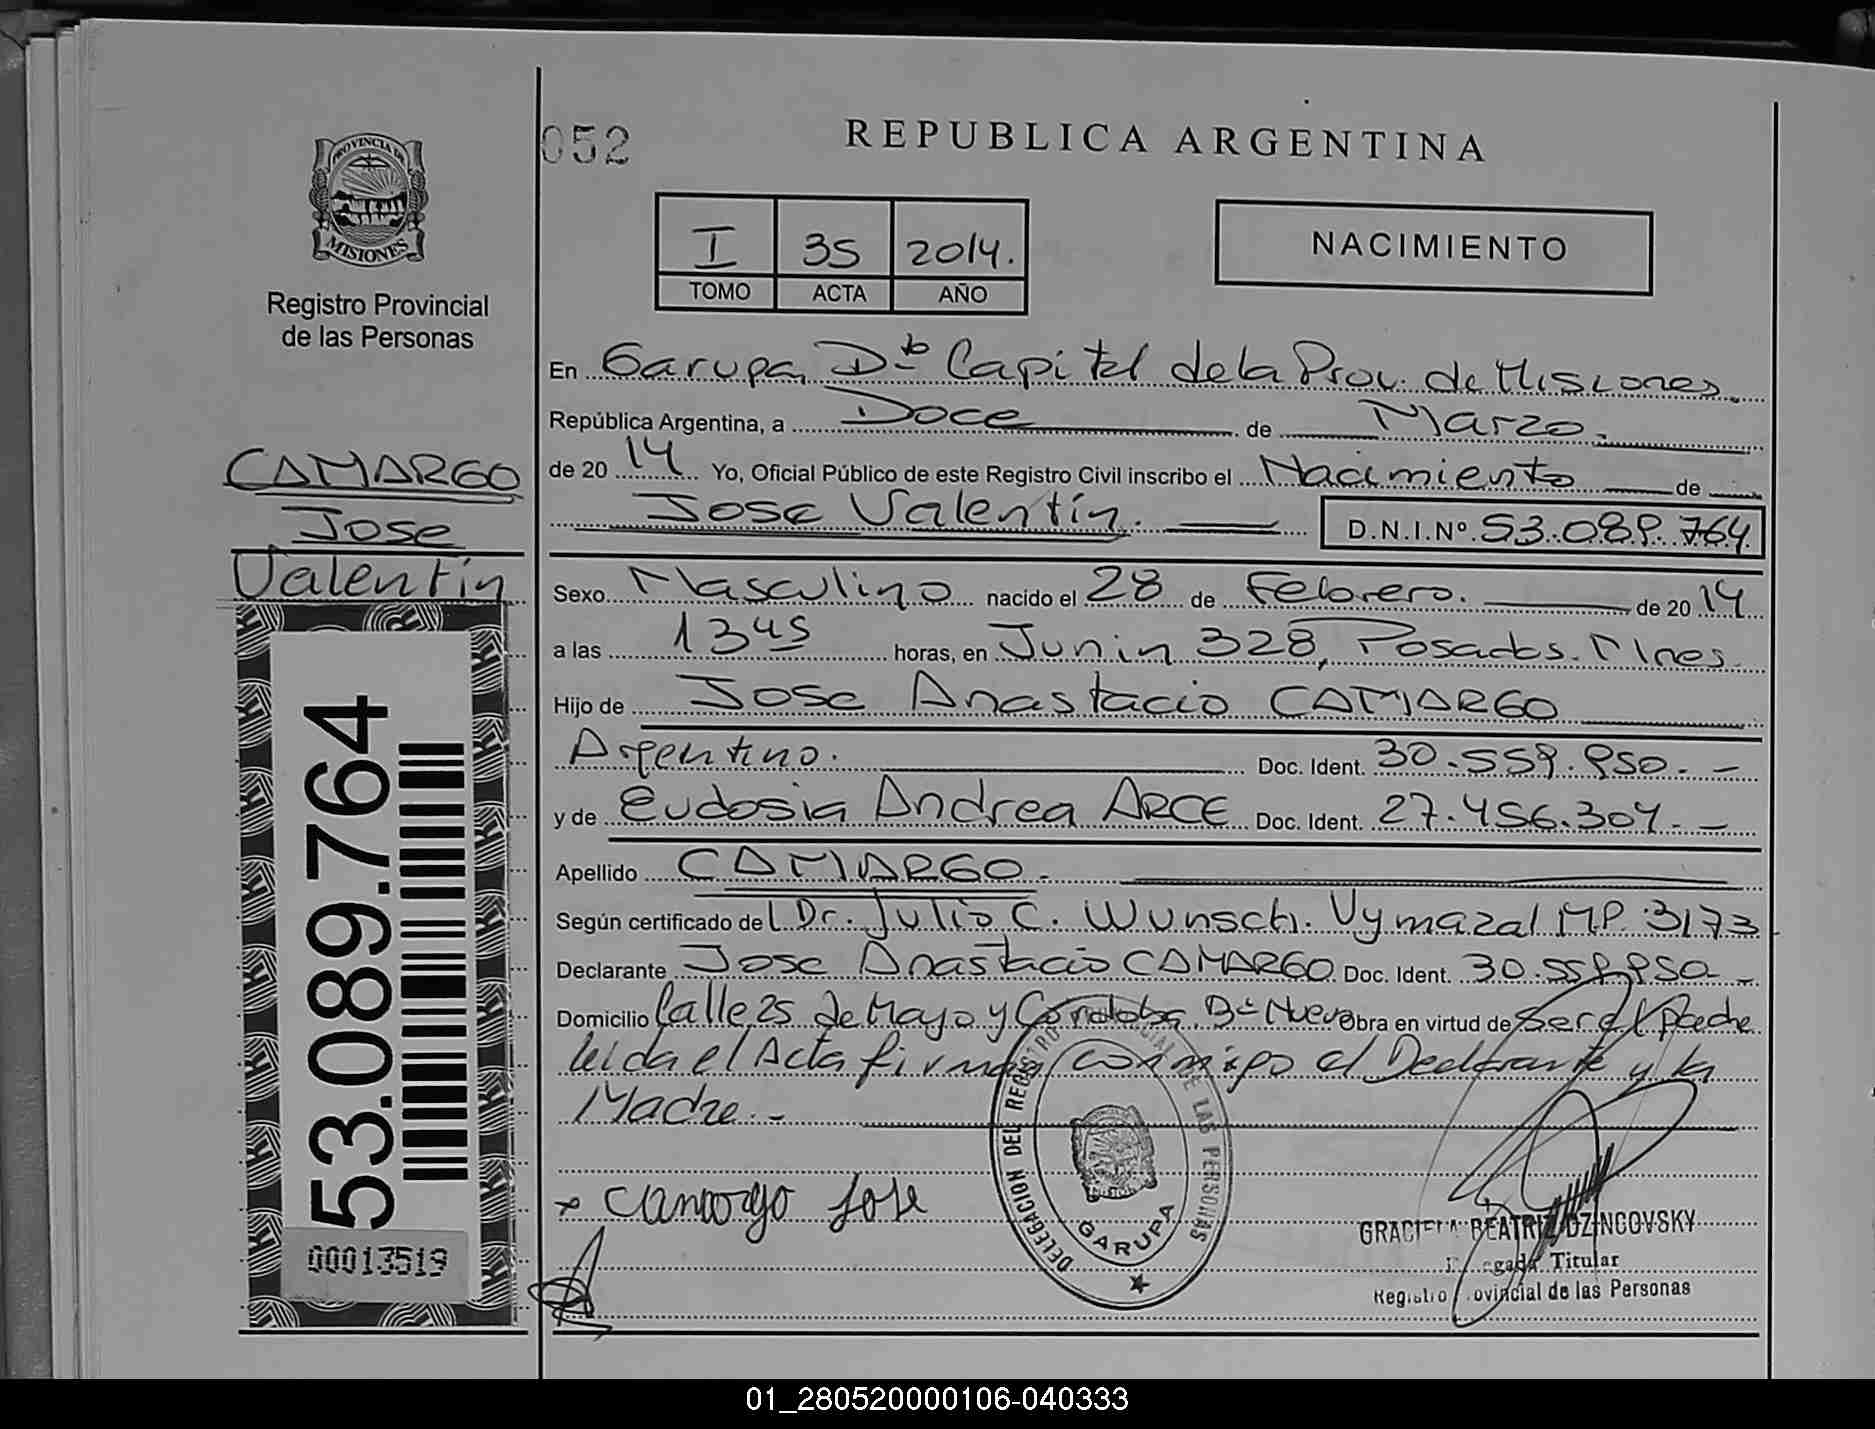 052
REPUBLICA ARGENTINA
PROVINCIA DE
MISIONES
Registro Provincial
de las Personas
I 35 2014.
TOMO ACTA AÑO
NACIMIENTO
CAMARGO
Jose
Valentin
53.089.764
00013519
En Garupa, Dto Capital de la Prov. de Misiones.
República Argentina, a Doce de Marzo.
de 20 14 Yo, Oficial Público de este Registro Civil inscribo el Nacimiento de
Jose Valentin. D.N.I.Nº 53.089.764
Sexo Masculino nacido el 28 de Febrero. de 20 14
a las 13 45 horas, en Junin 328, Posadas. Mnes.
Hijo de Jose Anastacio CAMARGO
Argentino. Doc. Ident. 30.559.950.-
y de Eudosia Andrea ARCE Doc. Ident. 27.456.304.-
Apellido CAMARGO.
Según certificado del Dr. Julio C. Wunsch. Vymazal MP. 3173
Declarante Jose Anastacio CAMARGO Doc. Ident. 30.559.950-
Domicilio Calle 25 de Mayo y Cordoba. Bº Nuevo Obra en virtud de Ser el Padre
leida el Acta firman conmigo el Declarante y la
Madre.-
x Camargo Jose
DELEGACION DEL REGISTRO PROVINCIAL DE LAS PERSONAS
GARUPA
GRACIELA BEATRIZ DZINCOVSKY
Delegada Titular
Registro Provincial de las Personas
01_280520000106-040333